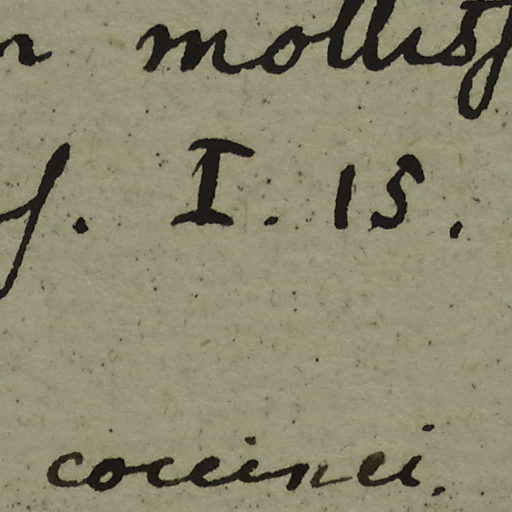 r mollis
f. I. 15.
coccinei.